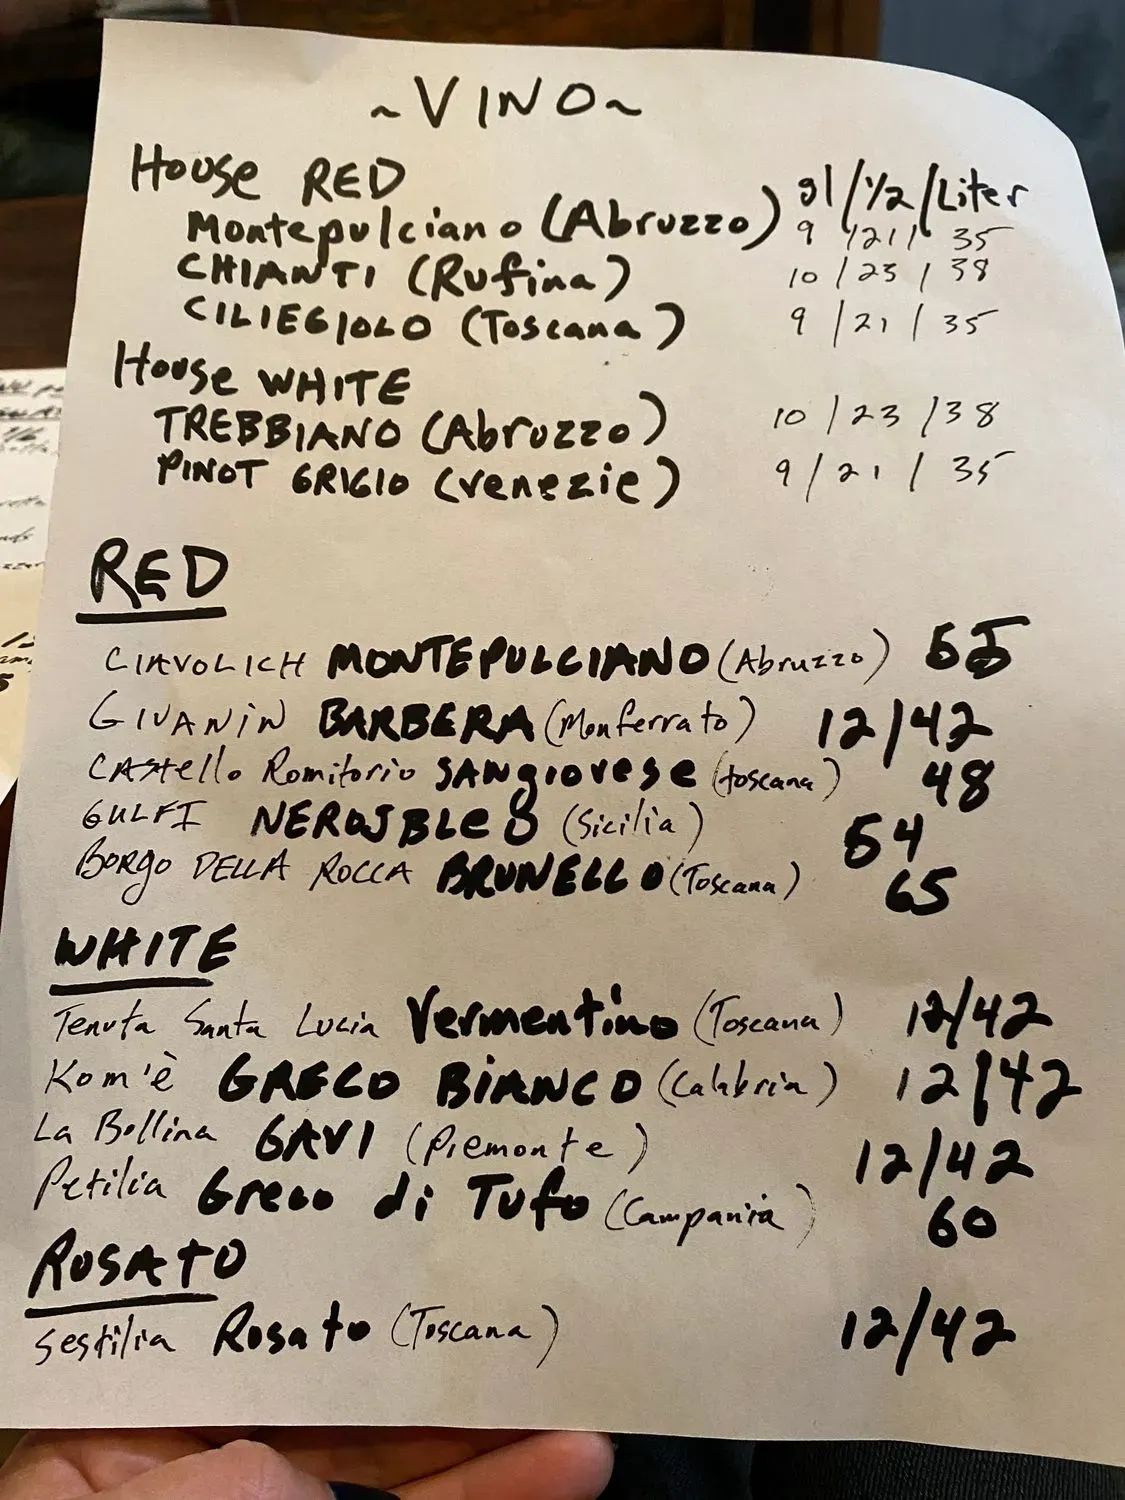 ~VINO~
House RED gl/½/Liter
Montepulciano (Abruzzo) 9/21/35
CHIANTI (Rufina) 10/23/38
CILIEGIOLO (Toscana) 9/21/35
House WHITE
TREBBIANO (Abruzzo) 10/23/38
PINOT GRIGIO (venezie) 9/21/35
RED
CIAVOLICH MONTEPULCIANO (Abruzzo)
GIVANIN BARBERA (Monferrato) 12/42
CAStello Romitorio SANgiovese (toscana) 48
GULFI (Sicilia) 54
BORgo DELLA ROCCA BRUNELLO (Toscana) 65
WHITE
Tenuta Santa Lucia Vermentino (Toscana) 12/42
Kom'è GRECO BiANCO (Calabria) 12/42
La Bollina GAVI (Piemonte) 12/42
Petilia Greco di Tufo (Campania) 60
ROSATO
Sestilia Rosato (Toscana) 12/42